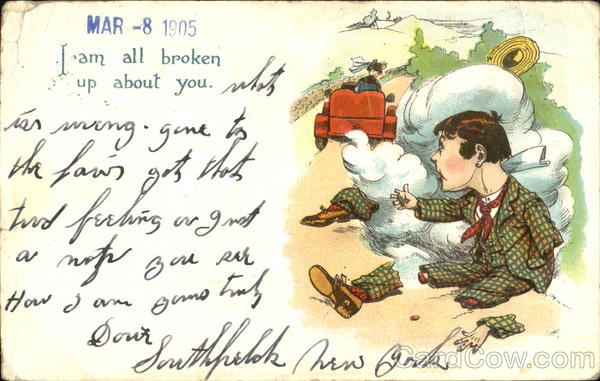 MAR -8 1905
I am all broken
up about you. whats
is wrong. gone to
the got that
tird feeling or just
a note you see
How I am yours truly
Dove
Southfields New York
CardCow.com